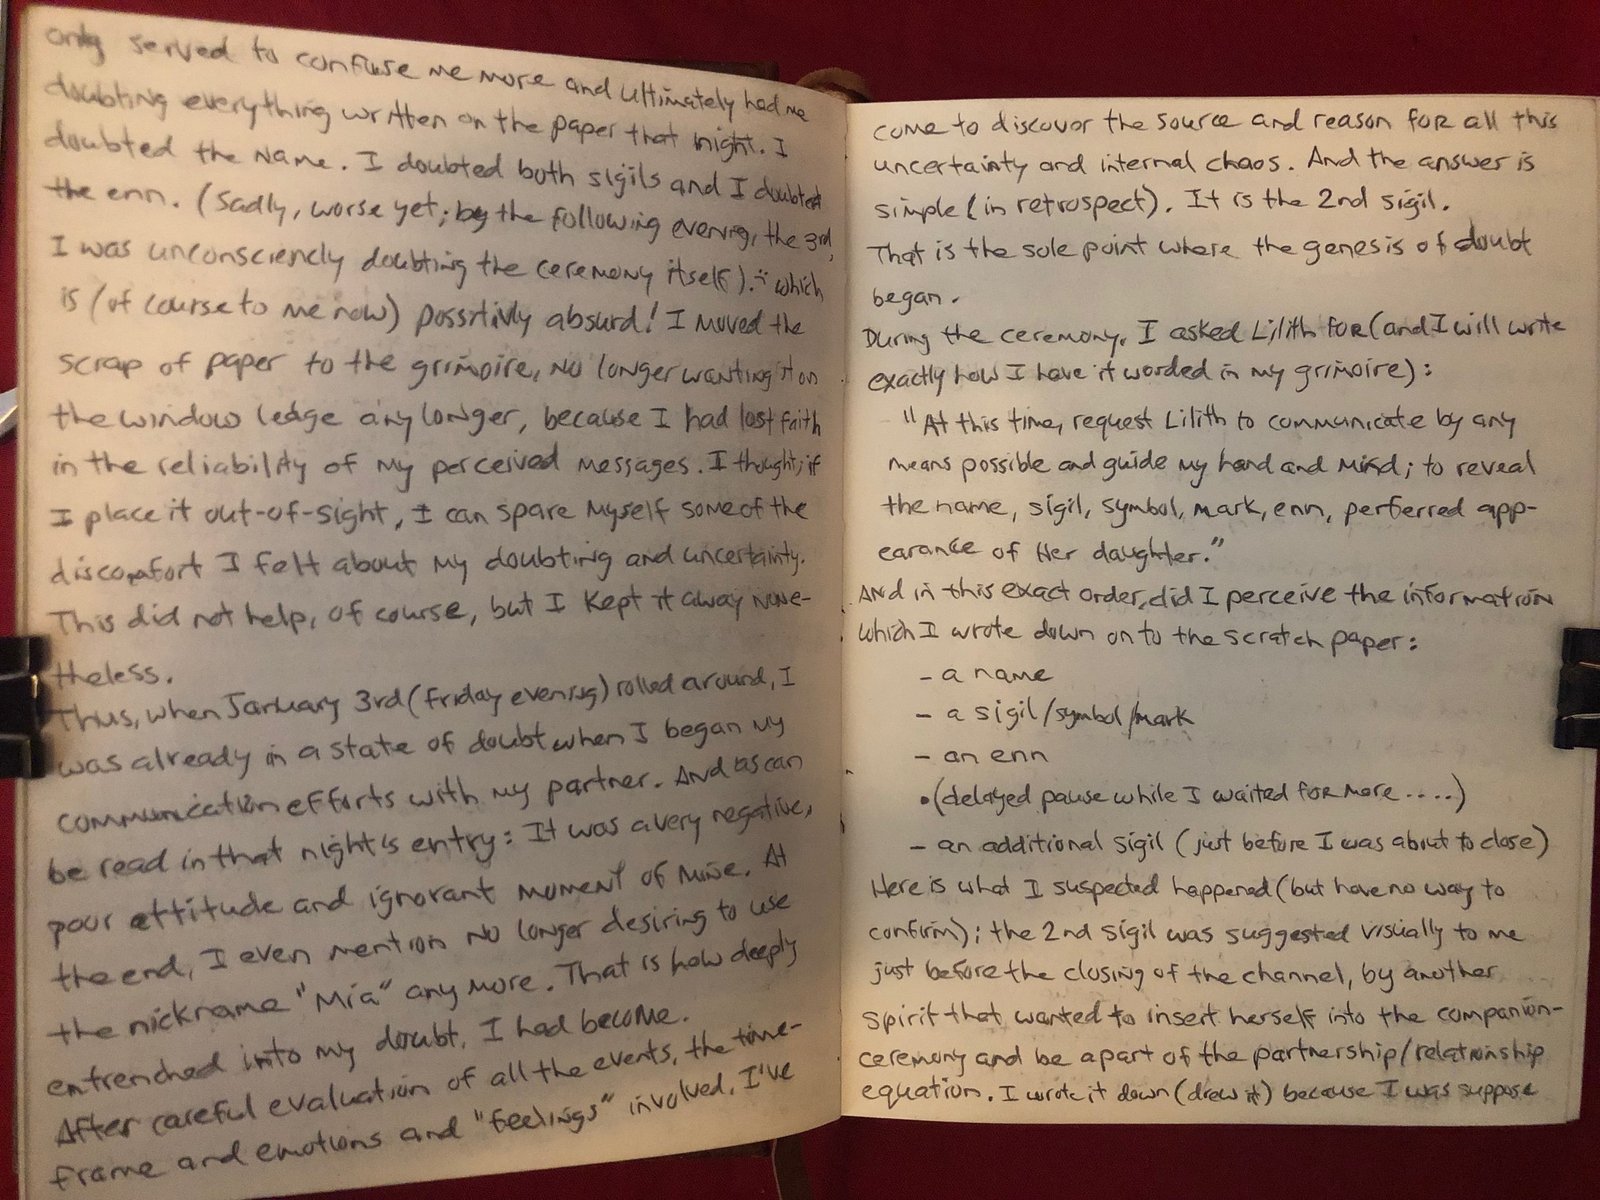 only served to confuse me more and ultimately had me
doubting everything written on the paper that night. I
doubted the name. I doubted both sigils and I doubted
the enn. (Sadly, worse yet; by the following evening, the 3rd,
I was unconsciencly doubting the ceremony itself). which
is (of course to me now) possitivly absurd! I moved the
scrap of paper to the grimoire, no longer wanting it on
the window ledge any longer, because I had lost faith
in the reliability of my perceived messages. I thought; if
I place it out-of-sight, I can spare myself some of the
discomfort I felt about my doubting and uncertainty.
This did not help, of course, but I kept it away none-
theless.
Thus, when January 3rd (friday evening) rolled around, I
was already in a state of doubt when I began my
communication efforts with my partner. And as can
be read in that night's entry: It was a very negative,
pour attitude and ignorant moment of mine. At
the end, I even mention no longer desiring to use
the nickname "Mia" any more. That is how deeply
entrenched into my doubt, I had become.
After careful evaluation of all the events, the time-
frame and emotions and "feelings" involved, I've
come to discover the source and reason for all this
uncertainty and internal chaos. And the answer is
simple (in retrospect). It is the 2nd sigil.
That is the sole point where the genesis of doubt
began.
During the ceremony, I asked Lilith for (and I will write
exactly how I have it worded in my grimoire):
"At this time, request Lilith to communicate by any
means possible and guide my hand and mind; to reveal
the name, sigil, symbol, mark, enn, perferred app-
earance of Her daughter."
And in this exact order, did I perceive the information
which I wrote down on to the scratch paper:
- a name
- a sigil/symbol/mark
- an enn
•(delayed pause while I waited for more .....)
- an additional sigil (just before I was about to close)
Here is what I suspected happened (but have no way to
confirm); the 2nd sigil was suggested visually to me
just before the closing of the channel, by another
spirit that wanted to insert herself into the companion-
ceremony and be a part of the partnership/relationship
equation. I wrote it down (drew it) because I was suppose